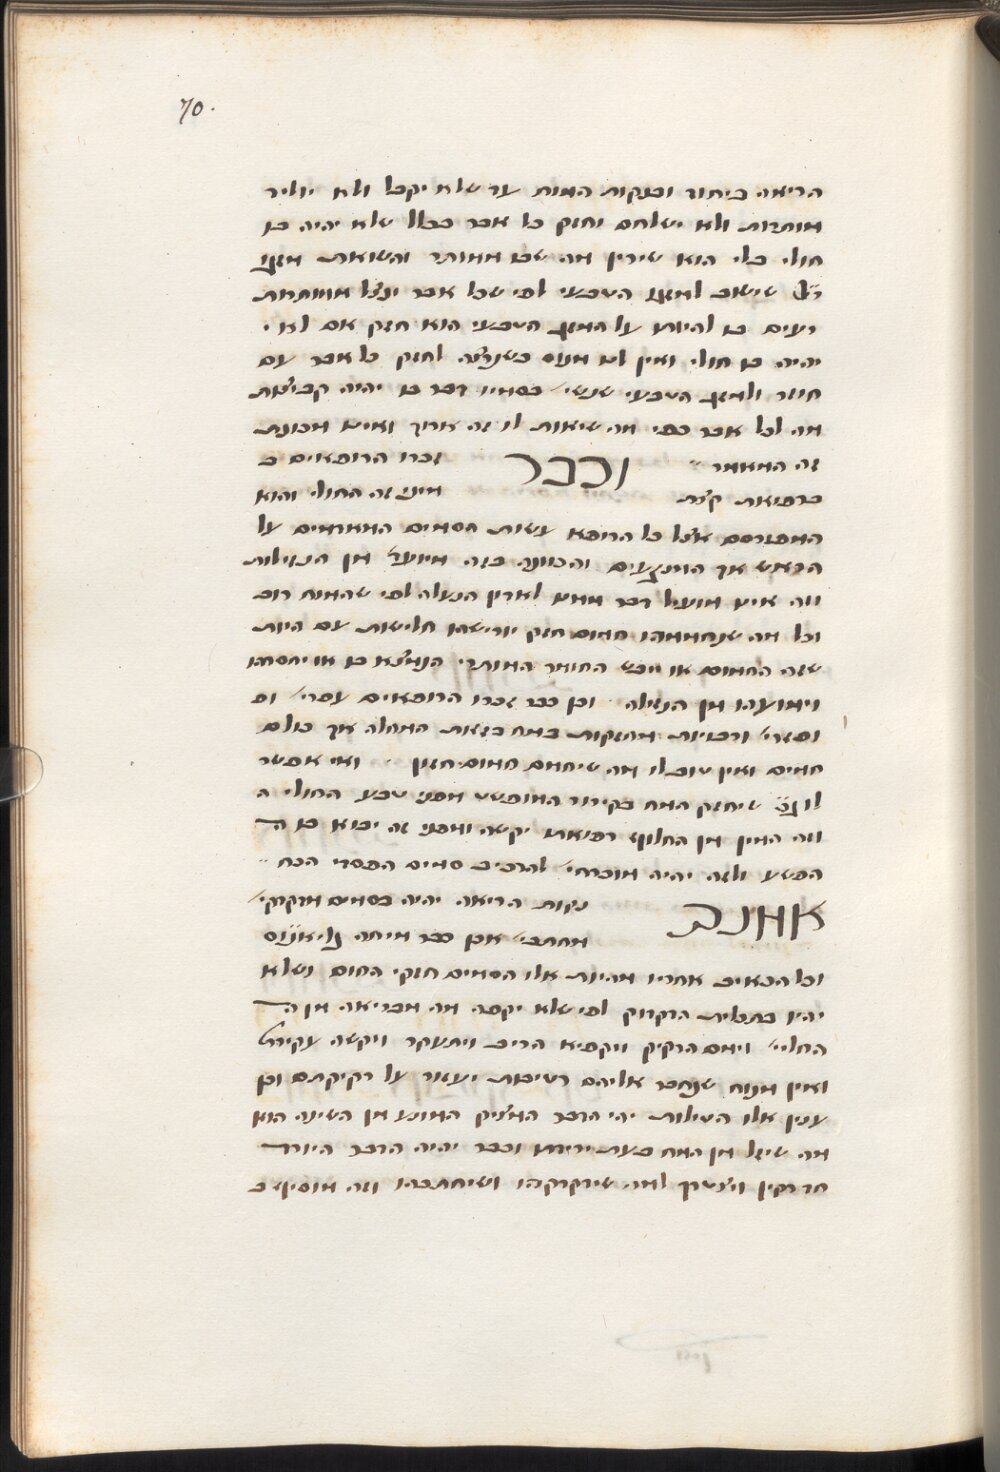 70.
הריאה ביחוד ובנקות המוח עד שלא יקבל ולא יוליד
מותרות ולא ישלחם וחזק כל אבר בכלל שלא יהיה בו
חולי כלי הוא שירין מה שבו ממותר והשואת מזגו
שישוב למזגו הטבעי לפי שכל אבר ינצל ממותרות
רעים בו להיותו על המזג הטבעי הוא חזק אם לא
יהיה בו חולי ואין לנו מנוס כשנרצה לחזק כל אבר עם
חוזר ולמזג הטבעי שנשי׳ בסמיו דבר בו יהיה קביצות
מה לכל אבר כפי מה שיאות לו זה ארוך ואינו מכונת
זה המאמר וכבר זכרו הרופאים ב
ברפואת קצת מיני זה החולי והוא
המפורסם אצל כל הרופא עשות הסמים המחממים על
הראש אך המונעים והכוונה בזה מיועד מן הנזילות
וזה אינו מועיל דבר ממנו לאדון הנעלה לפי שהמוח רב
וכל מה שנחממהו חמום חזק יורישהו חלישות עם היות
שזה החמום או ייבש החומר המותרי הנמצא בו או יחסמהו
וימנעהו מן הנזילה וכן כבר זכרו הרופאים עפרי׳ ום
וסגרי׳ ורבניות מחזקות במח בזאת המחלה אך כולם
חמים ואין סובלו מה שיחמם חמום חזק ואי אפשר
שיחזק המח בקירור המופשט מפני טבע החולי ה
וזה המין מן החלוף רפואתו יקשה ומפני זה יבוא בו ה
הפשע ולזה יהיה מוכרחי׳ להרכיב סמים הפסדי הכח
אמנם נקות הריאה יהיה בסמים מזקקי׳
מחתכי׳ אכן כבר מיחה גליאנוס
וכל הבאים אחריו מהיות אלו הסמים חזקי החום ושלא
יהיו בתכלית הדקדוק לפי שלא יקפה מה מבריאה מן ה
החליי׳ ויאם הרקיק ויקפיא הריב ויתעקר ויקשה עקירתו
ואין מנוח שנחבר אליהם רטיבות יעזור על רקיקתם וכן
ענין אלו השילות יהי הדבר המציק המונע מן השינה הוא
מה שיזל מן המח בעת ירידתו וכבר יהיה הדבר היורד
חד דקין ויצטרך למה שירקקהו ושיחתכהו וזה מוסיף ב